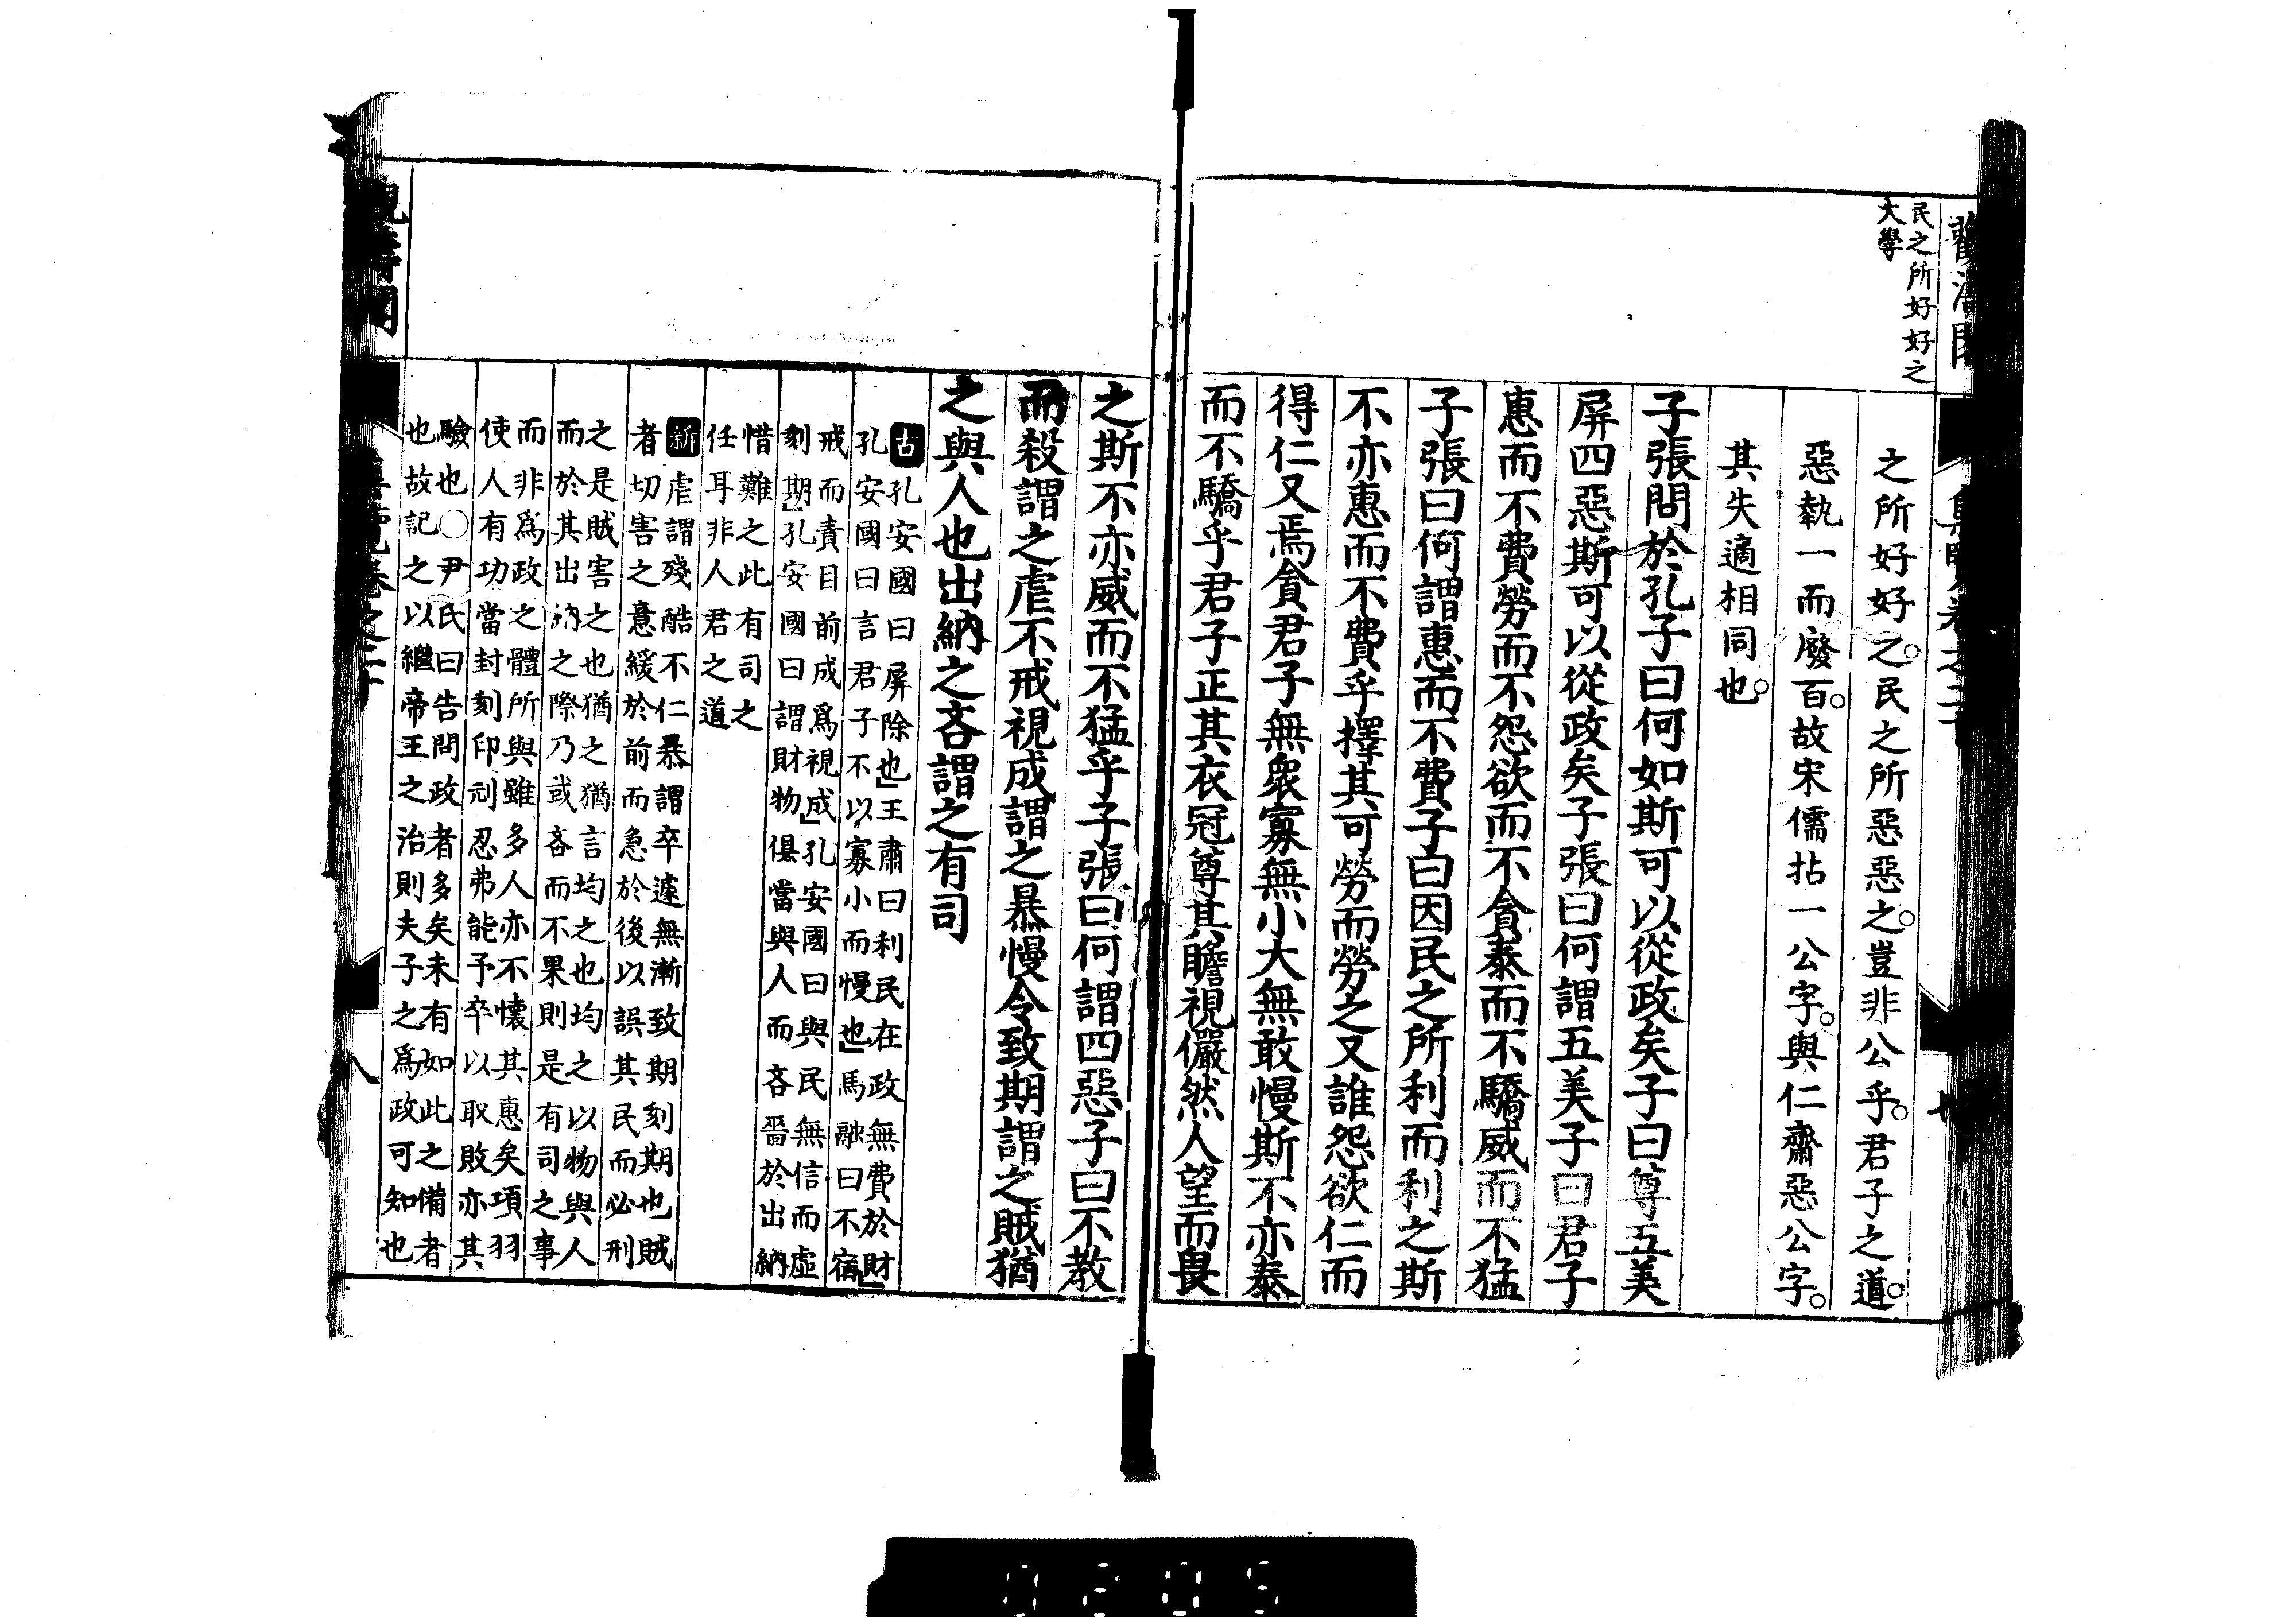 民之所好好之
大學
之所好好之。民之所惡惡之。豈非公乎。君子之道。
惡執一而廢百。故宋儒拈一公字。與仁齋惡公字。
其失適相同也。
子張問於孔子曰何如斯可以從政矣子曰尊五美
屏四惡斯可以從政矣子張曰何謂五美子曰君子
惠而不費勞而不怨欲而不貪泰而不驕威而不猛
子張曰何謂惠而不費子曰因民之所利而利之斯
不亦惠而不費乎擇其可勞而勞之又誰怨欲仁而
得仁又焉貪君子無衆寡無小大無敢慢斯不亦泰
而不驕乎君子正其衣冠尊其瞻視儼然人望而畏
之斯不亦威而不猛乎子張曰何謂四惡子曰不教
而殺謂之虐不戒視成謂之暴慢令致期謂之賊猶
之與人也出納之吝謂之有司
古孔安國曰屏除也」王肅曰利民在政無費於財」
孔安國曰言君子不以寡小而慢也」馬融曰不宿
戒而責目前成爲視成」孔安國曰與民無信而虛
刻期」孔安國曰謂財物俱當與人而吝嗇於出納
惜難之此有司之
任耳非人君之道
新虐謂殘酷不仁暴謂卒遽無漸致期刻期也賊
者切害之意緩於前而急於後以誤其民而必刑
之是賊害之也猶之猶言均之也均之以物與人
而於其出納之際乃或吝而不果則是有司之事
而非爲政之體所與雖多人亦不懷其惠矣項羽
使人有功當封刻印刓忍弗能予卒以取敗亦其
驗也○尹氏曰告問政者多矣未有如此之備者
也故記之以繼帝王之治則夫子之爲政可知也
八